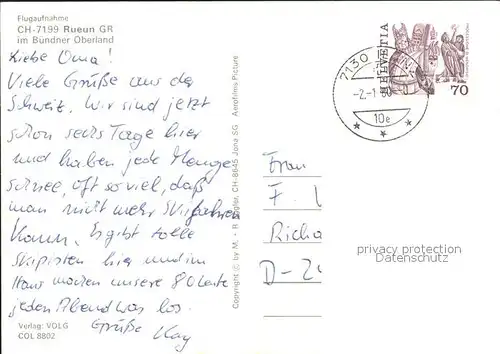 Flugaufnahme
CH-7199 Rueun GR
im Bündner Oberland
Liebe Oma!
Viele Grüße aus der
Schweiz. Wir sind jetzt
schon sechs Tage hier
und haben jede Menge
Schnee, oft so viel, daß
man nicht mehr Skifahren
kann. Es gibt tolle
Skipisten hier und im
Haus machen unsere 80 Leute
jeden Abend was los.
Grüße Kay
Verlag: VOLG
COL 8802
Copyright © by M. + R. CH-8645 Jona SG Aerofilms Picture
7130
-2.-1.80
10e
HELVETIA
70
Frau
F.
Richa
D-24
privacy protection
Datenschutz